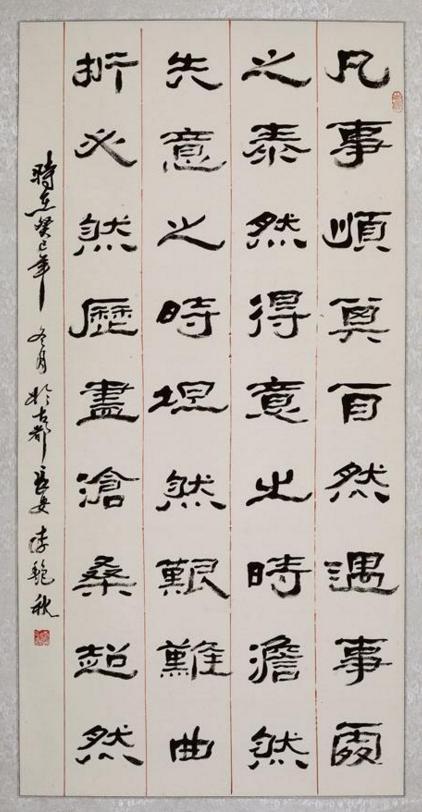 凡事順其自然遇事處
之泰然得意之時澹然
失意之時坦然艱難曲
折必然歷盡滄桑超然
時在癸巳年冬月於古都長安李秋